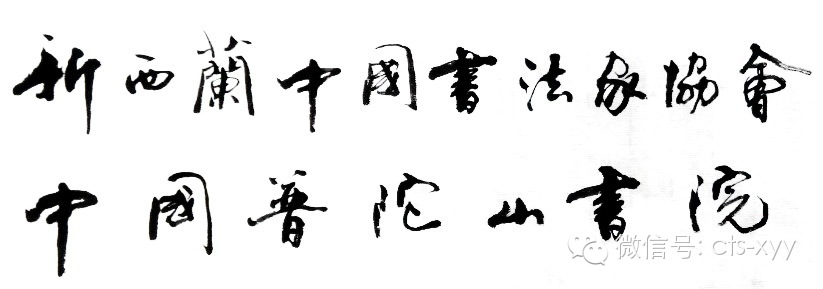 新西蘭中國書法家協會
中國普陀山書院
微信号: cts-xyy